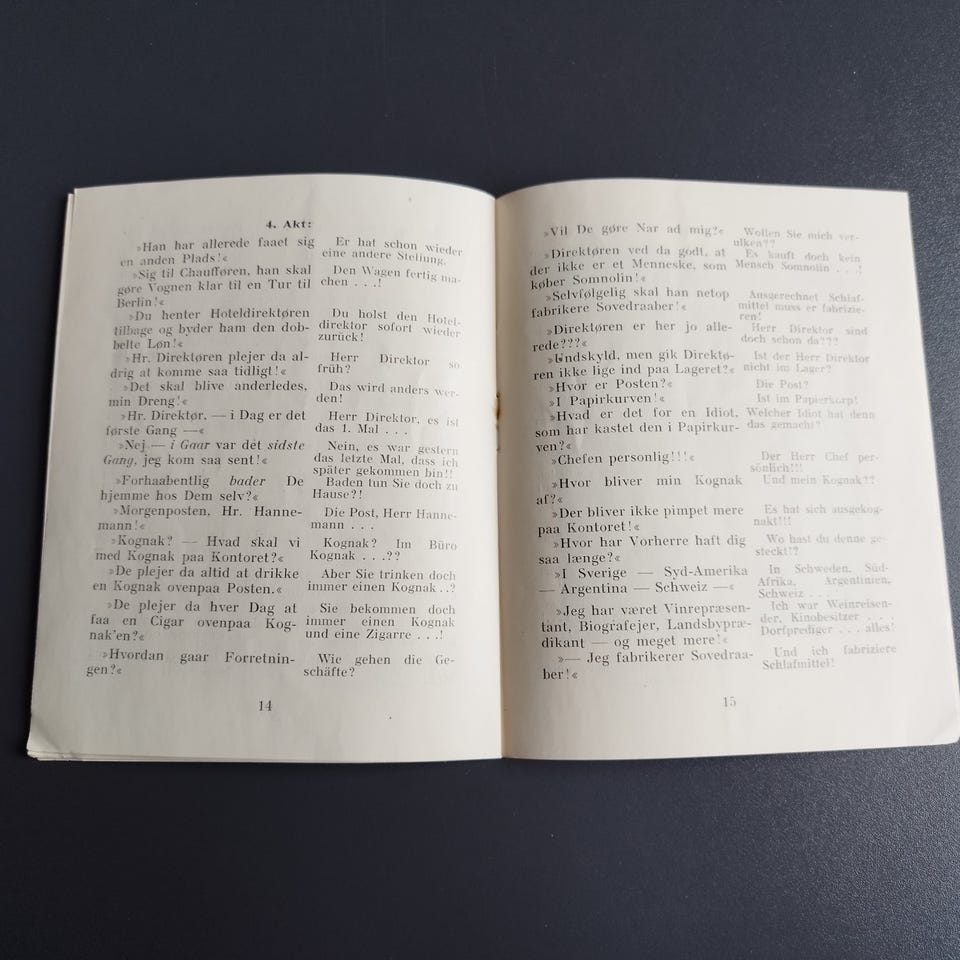 4. Akt:
»Han har allerede faaet sig
en anden Plads!«
»Sig til Chaufføren, han skal
gøre Vognen klar til en Tur til
Berlin!«
»Du henter Hoteldirektøren
tilbage og byder ham den dob-
belte Løn!«
»Hr. Direktøren plejer da al-
drig at komme saa tidligt!«
»Det skal blive anderledes,
min Dreng!«
»Hr. Direktør, — i Dag er det
første Gang —«
»Nej — i Gaar var det sidste
Gang, jeg kom saa sent!«
»Forhaabentlig bader De
hjemme hos Dem selv?«
»Morgenposten, Hr. Hanne-
mann!«
»Kognak? — Hvad skal vi
med Kognak paa Kontoret?«
»De plejer da altid at drikke
en Kognak ovenpaa Posten.«
»De plejer da hver Dag at
faa en Cigar ovenpaa Kog-
nak'en?«
»Hvordan gaar Forretnin-
gen?«
Er hat schon wieder
eine andere Stellung.
Den Wagen fertig ma-
chen . . .!
Du holst den Hotel-
direktor sofort wieder
zurück!
Herr Direktor so
früh?
Das wird anders wer-
den!
Herr Direktor, es ist
das 1. Mal . . .
Nein, es war gestern
das letzte Mal, dass ich
später gekommen bin!!
Baden tun Sie doch zu
Hause?!
Die Post, Herr Hanne-
mann . . .
Kognak? Im Büro
Kognak . . .??
Aber Sie trinken doch
immer einen Kognak . .?
Sie bekommen doch
immer einen Kognak
und eine Zigarre . . .!
Wie gehen die Ge-
schäfte?
14
»Vil De gøre Nar ad mig?«
»Direktøren ved da godt, at
der ikke er et Menneske, som
køber Somnolin!«
»Selvfølgelig skal han netop
fabrikere Sovedraaber!«
»Direktøren er her jo alle-
rede???«
»Undskyld, men gik Direktø-
ren ikke lige ind paa Lageret?«
»Hvor er Posten?«
»I Papirkurven!«
»Hvad er det for en Idiot,
som har kastet den i Papirkur-
ven?«
»Chefen personlig!!!«
»Hvor bliver min Kognak
af?«
»Der bliver ikke pimpet mere
paa Kontoret!«
»Hvor har Vorherre haft dig
saa længe?«
»I Sverige — Syd-Amerika
— Argentina — Schweiz —«
»Jeg har været Vinrepræsen-
tant, Biografejer, Landsbypræ-
dikant — og meget mere!«
»— Jeg fabrikerer Sovedraa-
ber!«
Wollen Sie mich ver-
ulken??
Es kauft doch kein
Mensch Somnolin . . .!
Ausgerechnet Schlaf-
mittel muss er fabrizie-
ren!
Herr Direktor sind
doch schon da???
Ist der Herr Direktor
nicht im Lager?
Die Post?
Ist im Papierkorp!
Welcher Idiot hat denn
das gemacht?
Der Herr Chef per-
sönlich!!!
Und mein Kognak??
Es hat sich ausgekog-
nakt!!!
Wo hast du denne ge-
steckt!?
In Schweden, Süd-
Afrika, Argentinien,
Schweiz . . .
Ich war Weinreisen-
der, Kinobesitzer . . .
Dorfprediger . . . alles!
Und ich fabriziere
Schlafmittel!
15